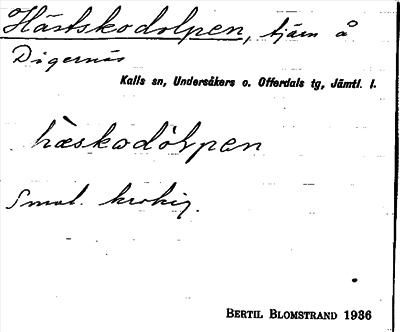 Hästskodolpen, tjärn å
Digernäs
Kalls sn, Undersåkers o. Offerdals tg, Jämtl. l.
hæskodòlpen
Smal. krokig.
BERTIL BLOMSTRAND 1936